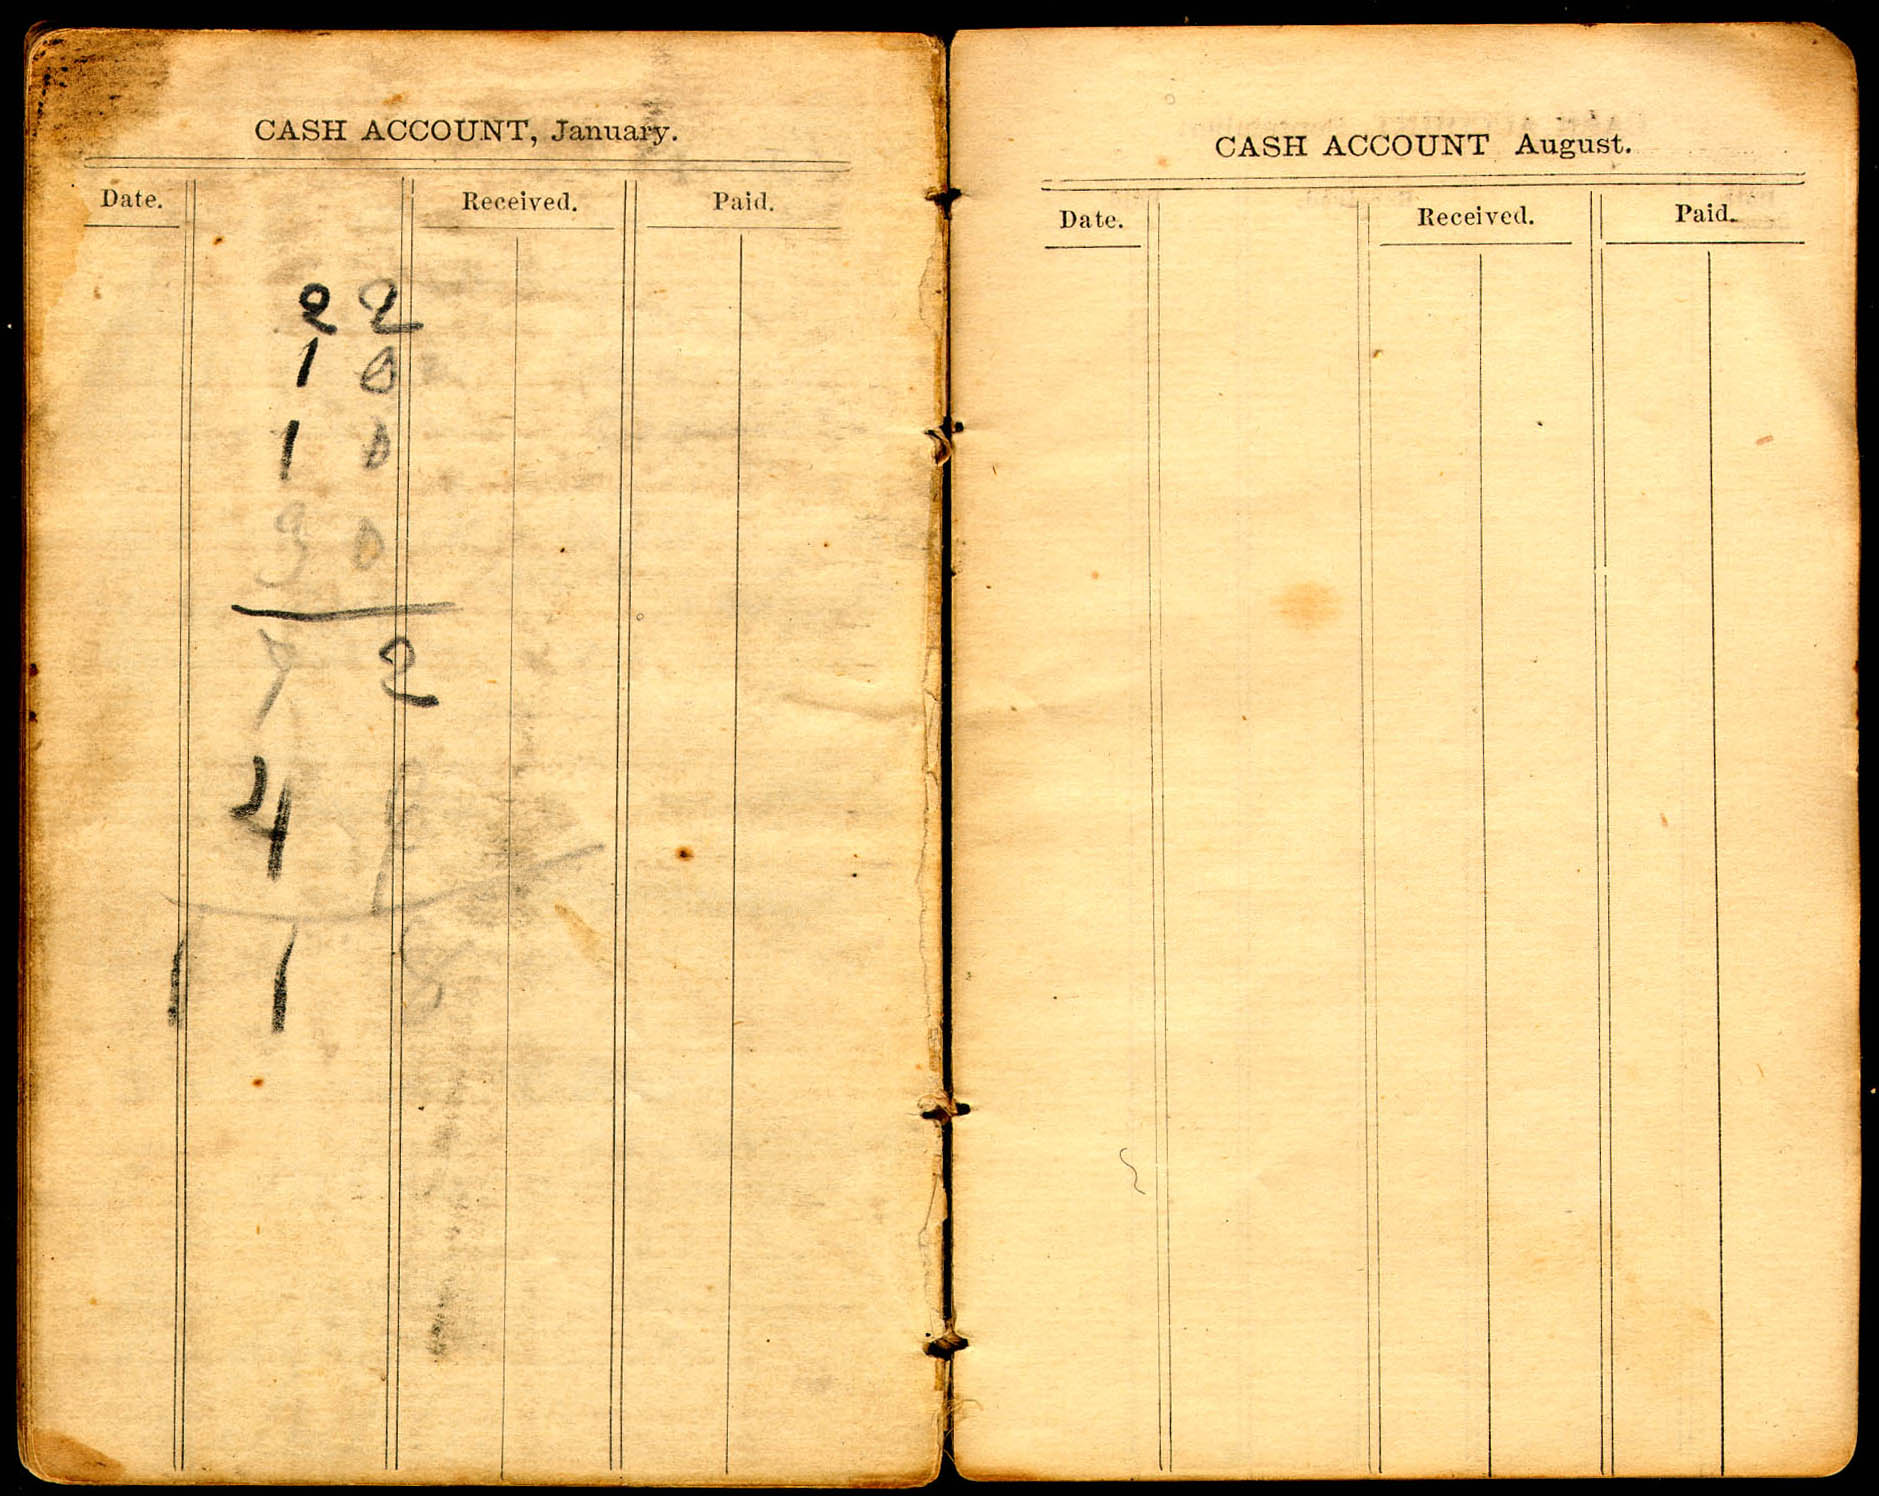 CASH ACCOUNT, January.
Date. Received. Paid.
22
10
10
30
72
4
118
CASH ACCOUNT August.
Date. Received. Paid.